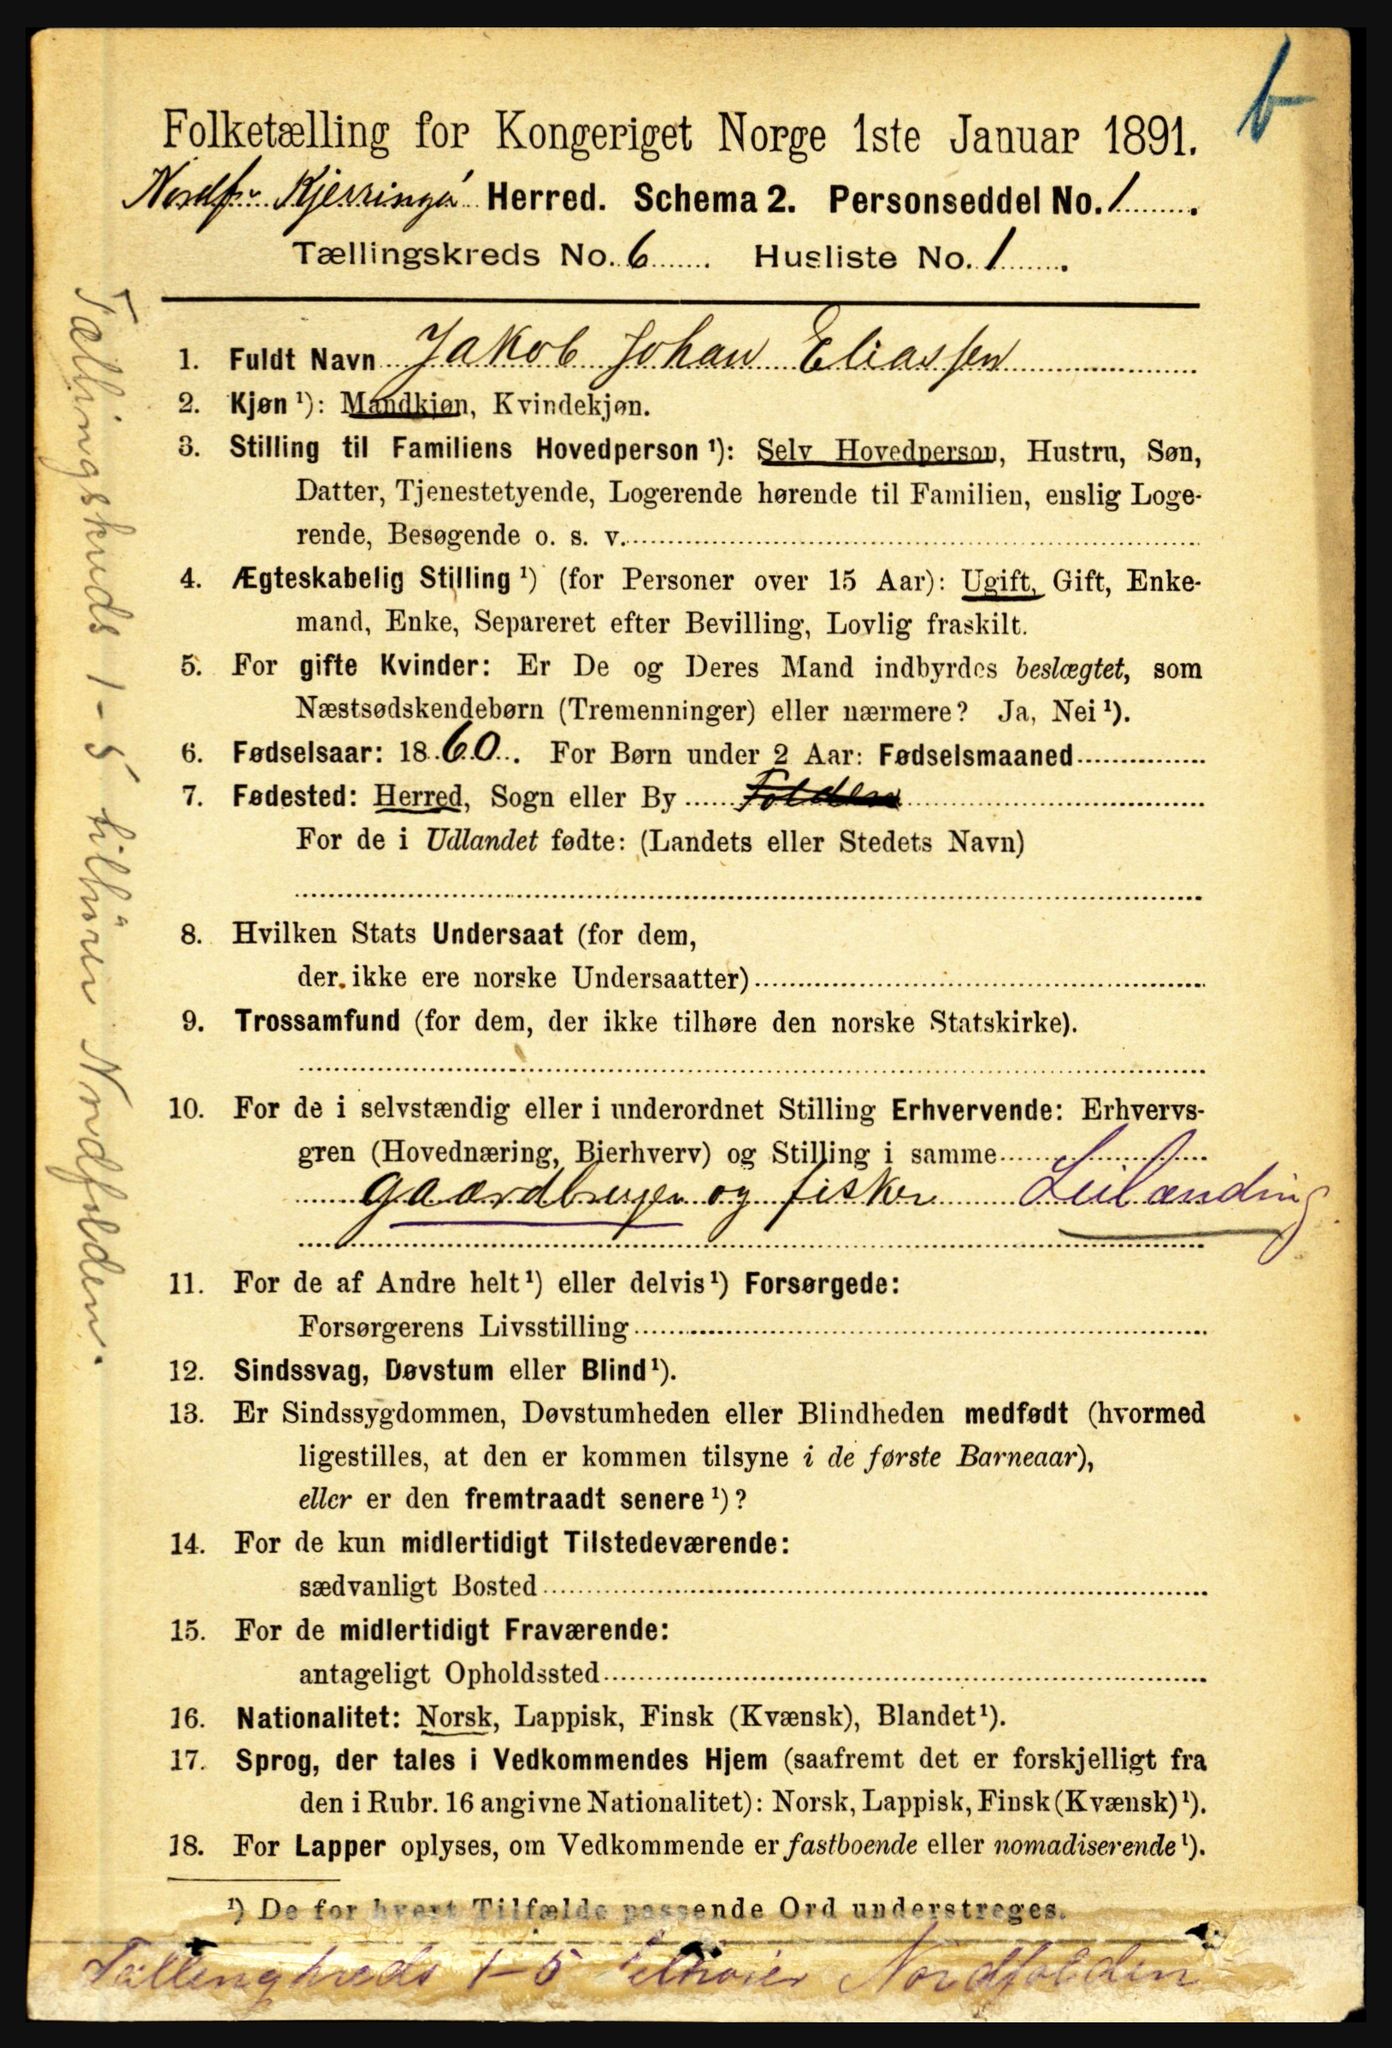 b
Folketælling for Kongeriget Norge 1ste Januar 1891.
Nordf.. Kjerringø Herred. Schema 2. Personseddel No. 1.
Tællingskreds No. 6. Husliste No. 1.
1. Fuldt Navn Jakob Johan Eliassen
2. Kjøn ¹): Mandkjøn, Kvindekjøn.
3. Stilling til Familiens Hovedperson ¹): Selv Hovedperson, Hustru, Søn,
Datter, Tjenestetyende, Logerende hørende til Familien, enslig Loge-
rende, Besøgende o. s. v.
4. Ægteskabelig Stilling ¹) (for Personer over 15 Aar): Ugift, Gift, Enke-
mand, Enke, Separeret efter Bevilling, Lovlig fraskilt.
5. For gifte Kvinder: Er De og Deres Mand indbyrdes beslægtet, som
Næstsødskendebørn (Tremenninger) eller nærmere? Ja, Nei ¹).
6. Fødselsaar: 1860. For Børn under 2 Aar: Fødselsmaaned
7. Fødested: Herred, Sogn eller By Folden
For de i Udlandet fødte: (Landets eller Stedets Navn)
8. Hvilken Stats Undersaat (for dem,
der ikke ere norske Undersaatter)
9. Trossamfund (for dem, der ikke tilhøre den norske Statskirke).
10. For de i selvstændig eller i underordnet Stilling Erhvervende: Erhvervs-
gren (Hovednæring, Bierhverv) og Stilling i samme
gaardbruger og fisker Leilænding
11. For de af Andre helt ¹) eller delvis ¹) Forsørgede:
Forsørgerens Livsstilling
12. Sindssvag, Døvstum eller Blind ¹).
13. Er Sindssygdommen, Døvstumheden eller Blindheden medfødt (hvormed
ligestilles, at den er kommen tilsyne i de første Barneaar),
eller er den fremtraadt senere ¹)?
14. For de kun midlertidigt Tilstedeværende:
sædvanligt Bosted
15. For de midlertidigt Fraværende:
antageligt Opholdssted
16. Nationalitet: Norsk, Lappisk, Finsk (Kvænsk), Blandet ¹).
17. Sprog, der tales i Vedkommendes Hjem (saafremt det er forskjelligt fra
den i Rubr. 16 angivne Nationalitet): Norsk, Lappisk, Finsk (Kvænsk) ¹).
18. For Lapper oplyses, om Vedkommende er fastboende eller nomadiserende ¹).
¹) De for hvert Tilfælde passende Ord understreges.
Tællingkreds 1-5 tilhører Nordfolden
Tællingskreds 1-5 tilhører Nordfolden.